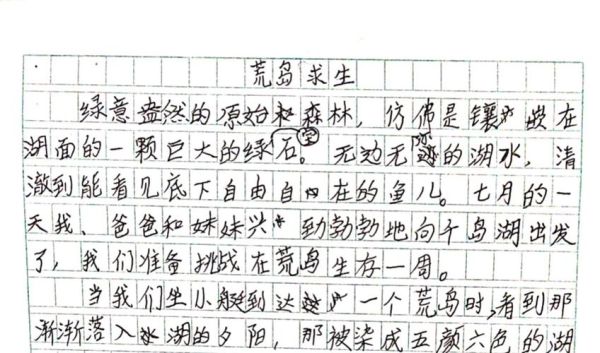 荒岛求生
绿意盎然的原始森林，仿佛是镶嵌在
湖面的一颗巨大的绿宝石。无边无际的湖水，清
澈到能看见底下自由自在的鱼儿。七月的一
天我、爸爸和妹妹兴致勃勃地向千岛湖出发
了，我们准备挑战在荒岛生存一周。
当我们坐小艇到达一个荒岛时，看到那
渐渐落入湖的夕阳，那被染成五颜六色的湖